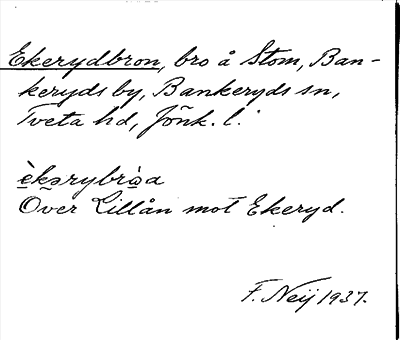 Ekerydbron, bro å Stom, Ban-
keryds by, Bankeryds sn,
Tveta hd, Jönk. l.
èkərybrò̱a
Över Lillån mot Ekeryd.
F. Neij 1937.